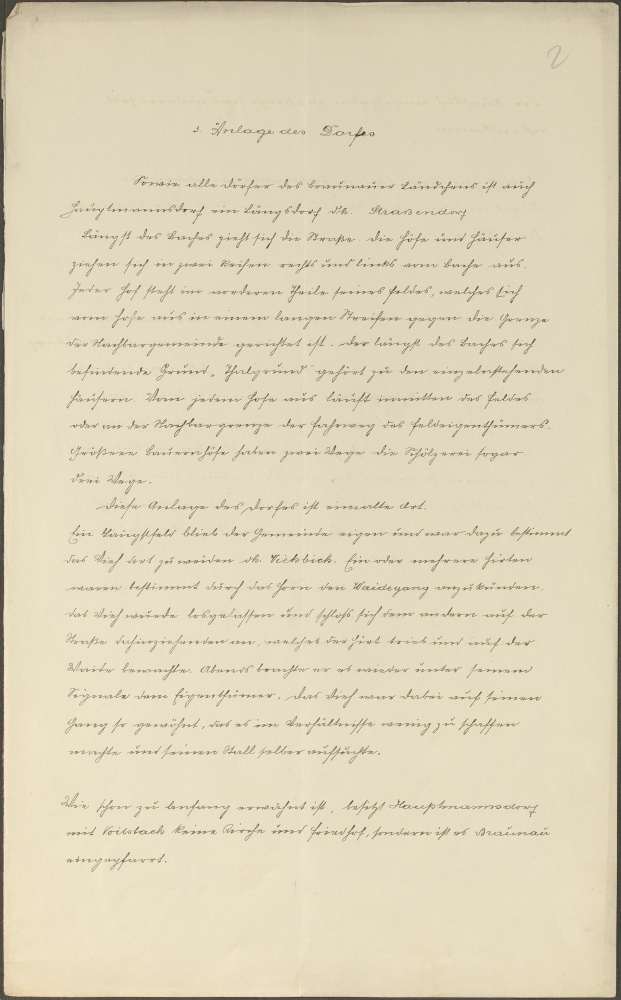 2
2. Anlage des Dorfes
Sowie alle Dörfer des Braunauer Ländchens ist auch
Hauptmannsdorf ein Längsdorf dh. Strassendorf
Längst des Baches zieht sich die Straße. die Höfe und Häuser
ziehen sich in zwei Reihen rechts und links vom Bache aus.
Jeder Hof steht im vorderen Theile seines Feldes, welches sich
vom Hofe aus in einem langen Streifen gegen die Grenze
der Nachbargemeinde gerichtet ist. Der längst des Baches sich
befindende Grund „Thalgrund" gehört zu den einzelnstehenden
Häusern. Vom jedem Hofe aus läuft inmitten des Feldes
oder an der Nachbargrenze der Fahrweg des Feldeigenthümers.
Größere Bauernhöfe haben zwei Wege die Schölzerei sogar
drei Wege.
Diese Anlage des Dorfes ist eine alte Art.
Ein Längstfeld blieb der Gemeinde eigen und war dazu bestimmt
das Vieh dort zu weiden dh. Viehbich. Ein oder mehrere Hirten
waren bestimmt durch das Horn den Waidegang anzukünden.
Das Vieh wurde losgelassen und schloss sich dem andern auf der
Straße dahinziehenden an, welches der Hirt trieb und auf der
Waite bewachte. Abends brachte er es wieder unter seinem
Signale dem Eigenthümer. Das Vieh war dabei auf seinen
Gang so gewöhnt, das es im Verhältnisse wenig zu schaffen
machte und seinen Stall selber aufsuchte.
Wie schon zu Anfang erwähnt ist, besitzt Hauptmannsdorf
mit Voitsbach keine Kirche und Friedhof, sondern ist es Braunau
eingepfarrt.